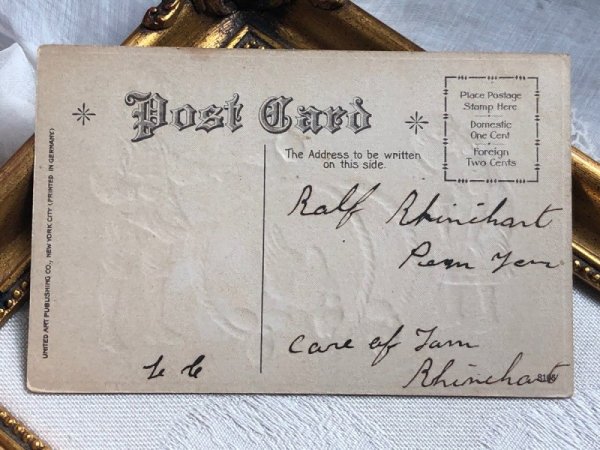 Post Card
Place Postage
Stamp Here
Domestic
One Cent
Foreign
Two Cents
The Address to be written
on this side.
UNITED ART PUBLISHING CO., NEW YORK CITY (PRINTED IN GERMANY)
Ralf Rhinehart
Penn Yan
Care of
Rhinehart